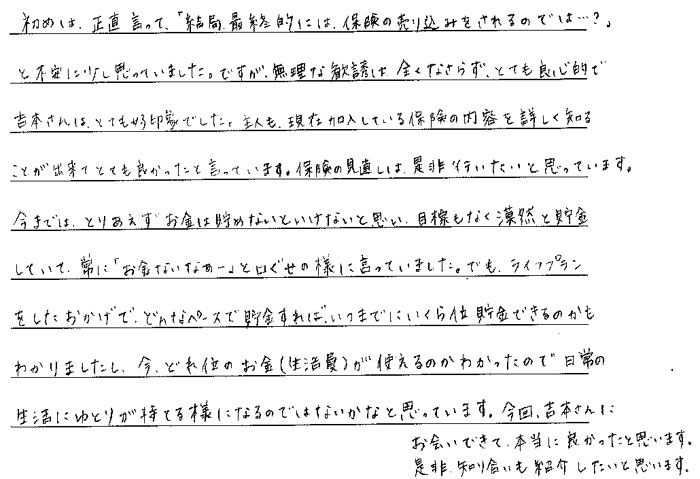 初めは、正直言って、「結局、最終的には、保険の売り込みをされるのでは…？」
と不安に少し思っていました。ですが、無理な勧誘は全くなさらず、とても良心的で
吉本さんは、とても好印象でした。主人も、現在加入している保険の内容を詳しく知る
ことが出来てとても良かったと言っています。保険の見直しは、是非行いたいと思っています。
今までは、とりあえずお金は貯めないといけないと思い、目標もなく漠然と貯金
していて、常に「お金ないなぁー」と口ぐせの様に言っていました。でも、ライフプラン
をしたおかげで、どんなペースで貯金すれば、いつまでにいくら位貯金できるのかも
わかりましたし、今、どれ位のお金(生活費)が使えるのかわかったので日常の
生活にゆとりが持てる様になるのではないかなと思っています。今回、吉本さんに
お会いできて、本当に良かったと思います。
是非、知り合いも紹介したいと思います。